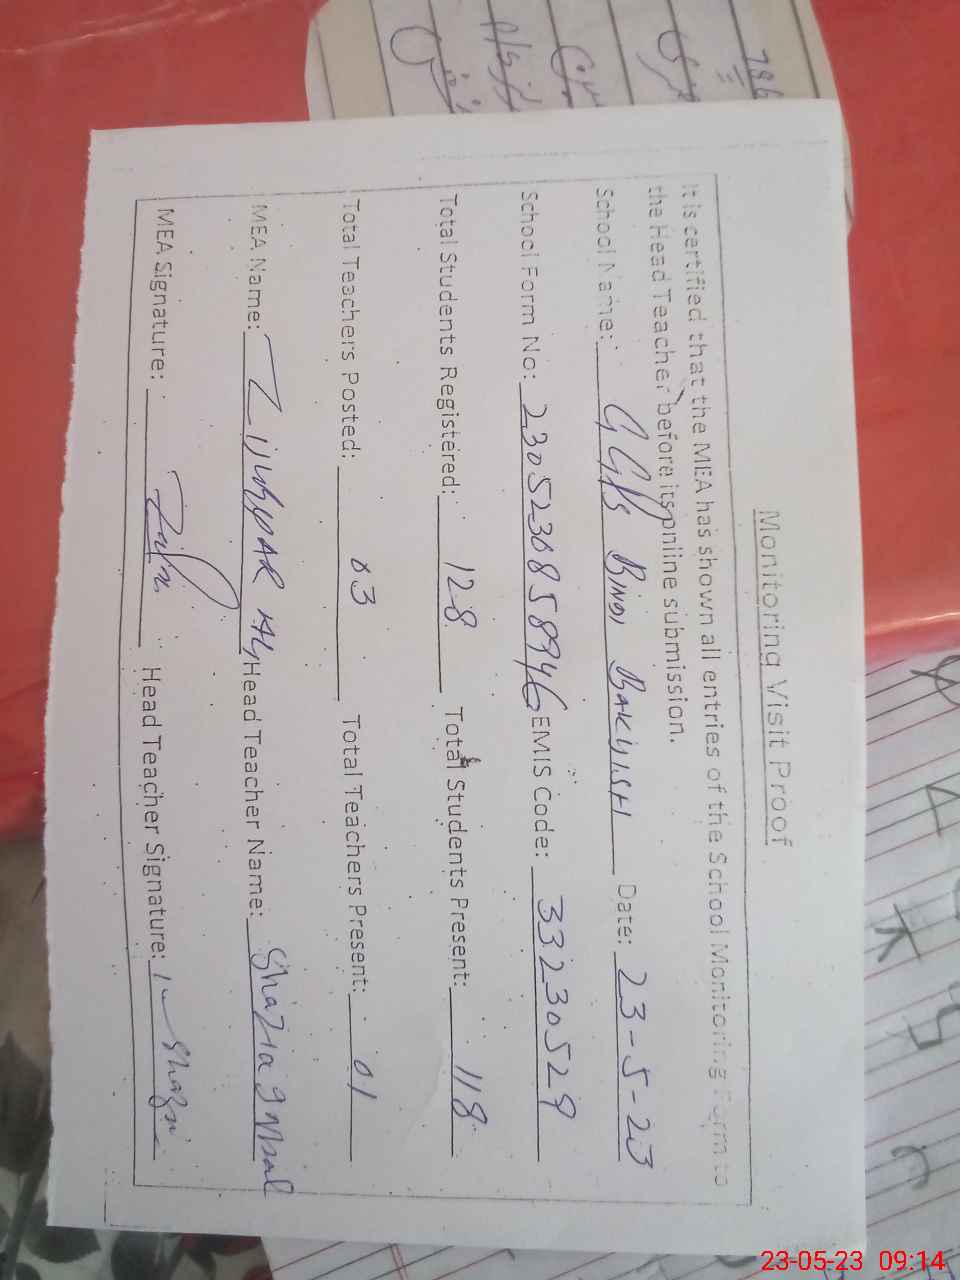 786
Monitoring Visit Proof
It is certified that the MEA has shown all entries of the School Monitoring Form to
the Head Teacher before its online submission.
School Name: GGPS BINDI BAKHISH Date: 23-5-23
School Form No: 2305230858946 EMIS Code: 33230529
Total Students Registered: 128 Total Students Present: 118
Total Teachers Posted: 03 Total Teachers Present: 01
MEA Name: Zulfiqar Aly Head Teacher Name: Shazia
MEA Signature: Head Teacher Signature: Shazia
23-05-23 09:14